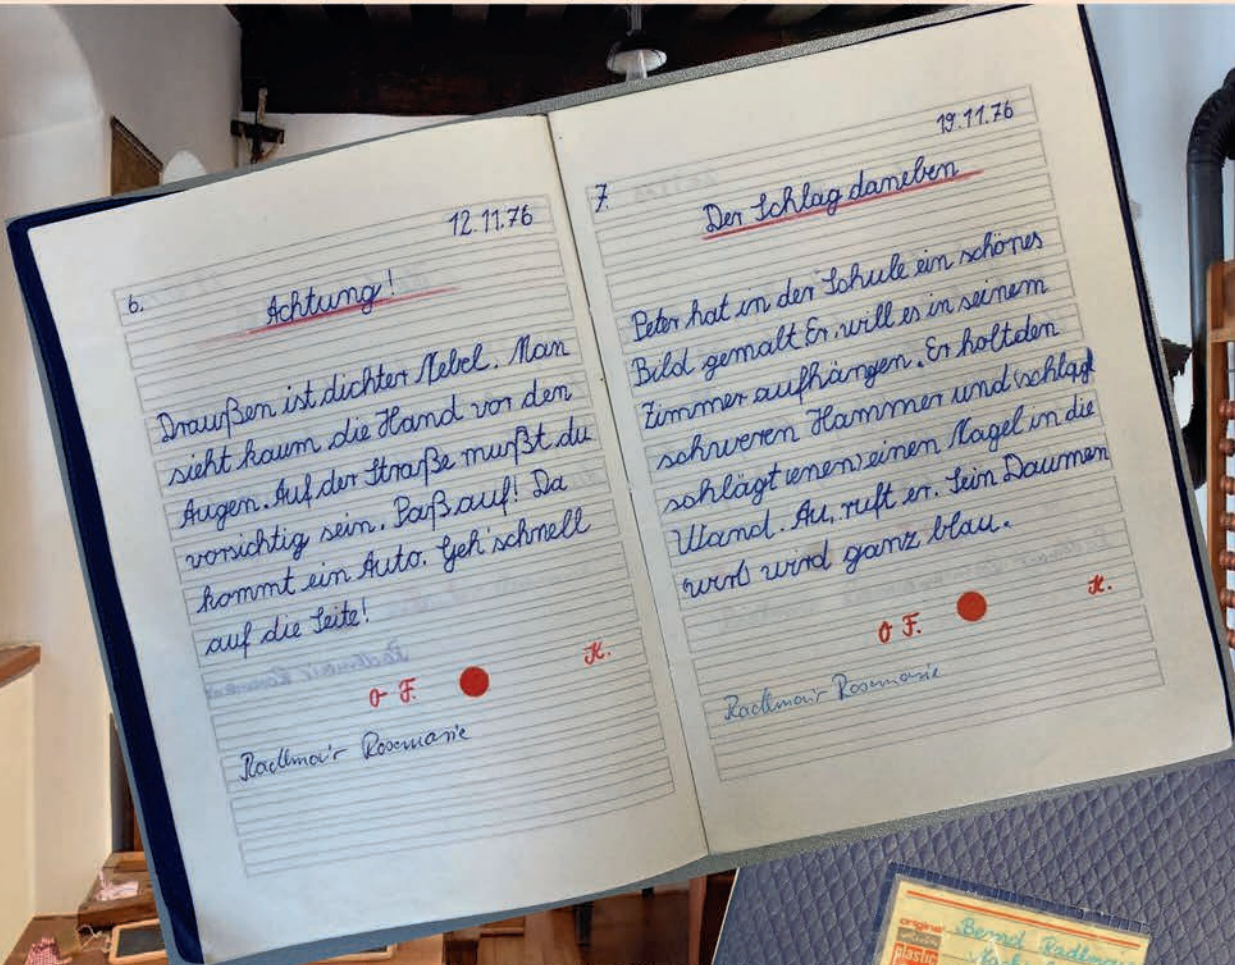 12.11.76
6.
Achtung!
Draußen ist dichter Nebel. Man
sieht kaum die Hand vor den
Augen. Auf der Straße mußt du
vorsichtig sein. Paß auf! Da
kommt ein Auto. Geh' schnell
auf die Seite!
0 F.
K.
Radlmair Rosemarie
19.11.76
7.
Der Schlag daneben
Peter hat in der Schule ein schönes
Bild gemalt. Er will es in seinem
Zimmer aufhängen. Er holt den
schweren Hammer und (schlagt
schlägt enen) einen Nagel in die
Wand. Au, ruft er. Sein Daumen
wird ganz blau.
0 F.
K.
Radlmair Rosemarie
original
plastic
Bernd Radlmair